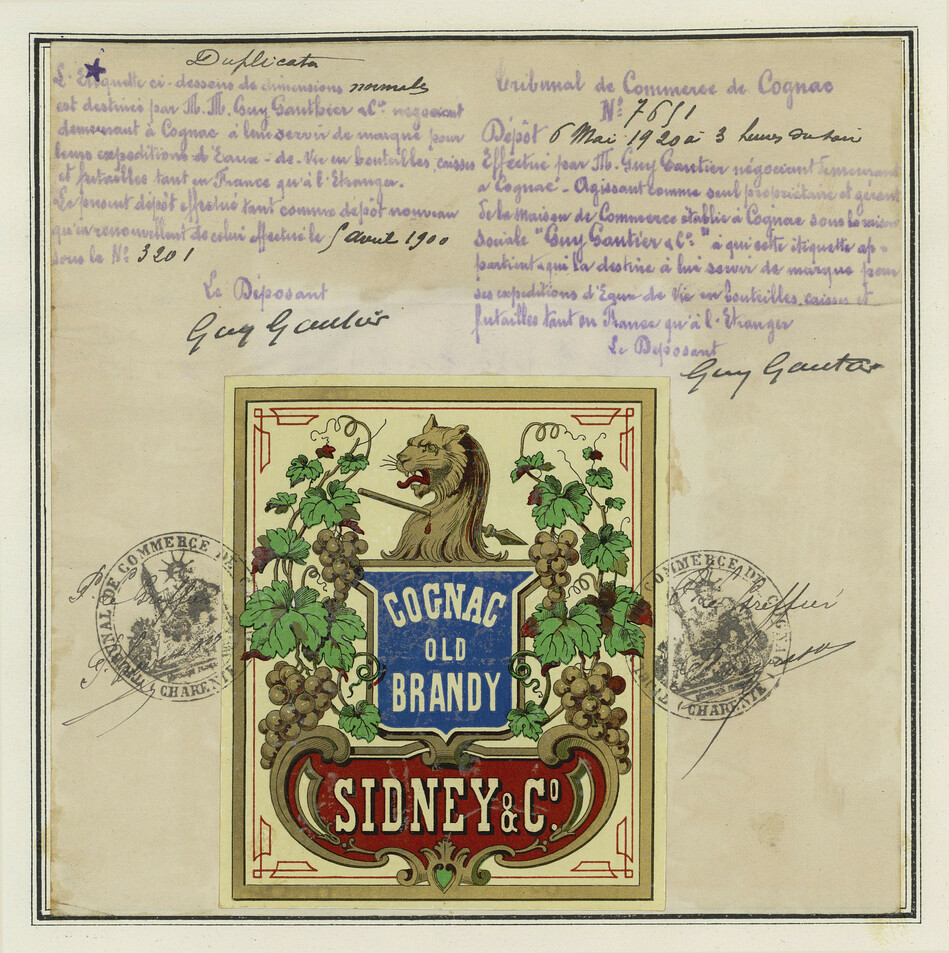 Duplicata
L'Etiquette ci-dessous de dimensions normales
est destinée par M. M. Guy Gauthier & Cº négociant
demeurant à Cognac à lui servir de marque pour
leurs expeditions d'Eaux-de-Vie en bouteilles, caisses
et futailles tant en France qu'à l'Etranger.
Le présent dépôt effectué tant comme dépôt nouveau
qu'en renouvellement de celui effectué le 5 avril 1900
sous le Nº 3201
Le Déposant
Guy Gautier
Tribunal de Commerce de Cognac
Nº 7651
Dépôt 6 Mai 1920 à 3 heures du soir
Effectué par M. Guy Gautier négociant demeurant
à Cognac - Agissant comme seul propriétaire et gérant
de la Maison de Commerce établie à Cognac sous la raison
sociale "Guy Gautier & Cº" à qui cette étiquette ap-
partient & qui la destine à lui servir de marque pour
ses expeditions d'Eaux de Vie en bouteilles, caisses et
futailles tant en France qu'à l'Etranger
Le Déposant
Guy Gautier
COGNAC
OLD
BRANDY
SIDNEY & Cº.
TRIBUNAL DE COMMERCE DE
(CHARENTE)
COMMERCE DE
(CHARENTE)
Greffier